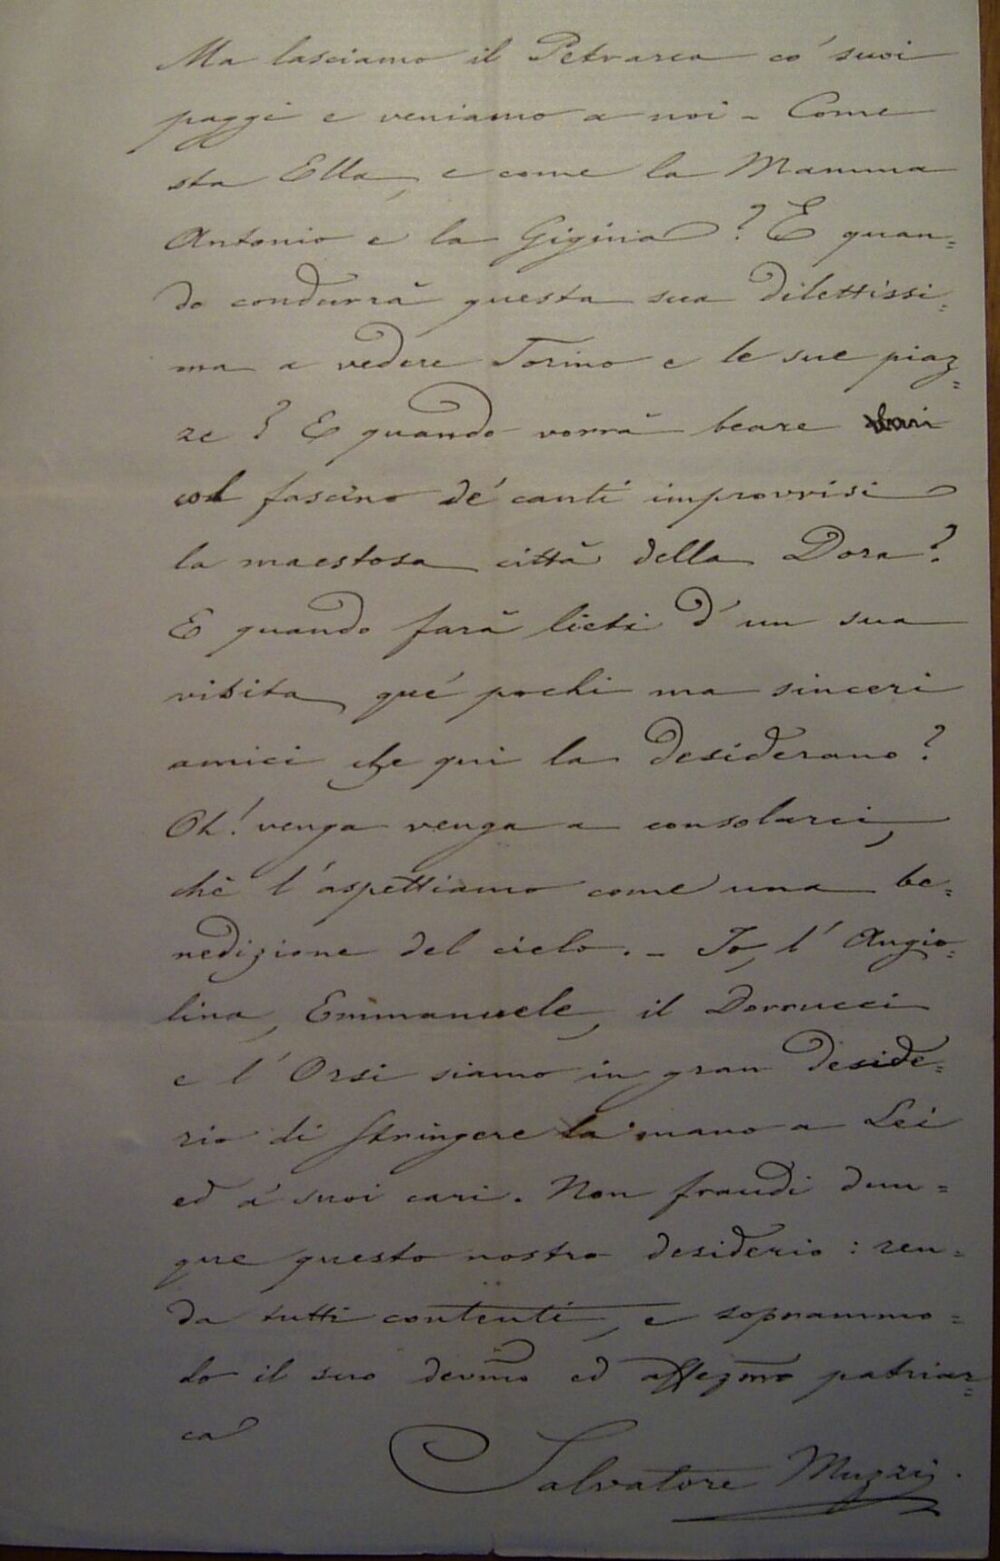 Ma lasciamo il Petrarca co' suoi
paggi e veniamo a noi - Come
sta Ella, e come la Mamma
Antonio e la Gigina? E quan=
do condurrà questa sua dilettissi=
ma a vedere Torino e le sue piaz=
ze? E quando vorrà beare
col fascino de' canti improvvisi
la maestosa città della Dora?
E quando farà lieti d'un sua
visita, que' pochi ma sinceri
amici che qui la desiderano?
Oh! venga venga a consolarci,
chè l'aspettiamo come una be=
nedizione del cielo. - Io, l'Angio=
lina, Emmanuele, il Dorrucci
e l'Orsi siamo in gran deside=
rio di stringere la mano a Lei
ed a' suoi cari. Non fraudi dun=
que questo nostro desiderio: ren=
da tutti contenti, e soprammo=
do il suo devmo ed affezmo patriar=
ca
Salvatore Muzzi.